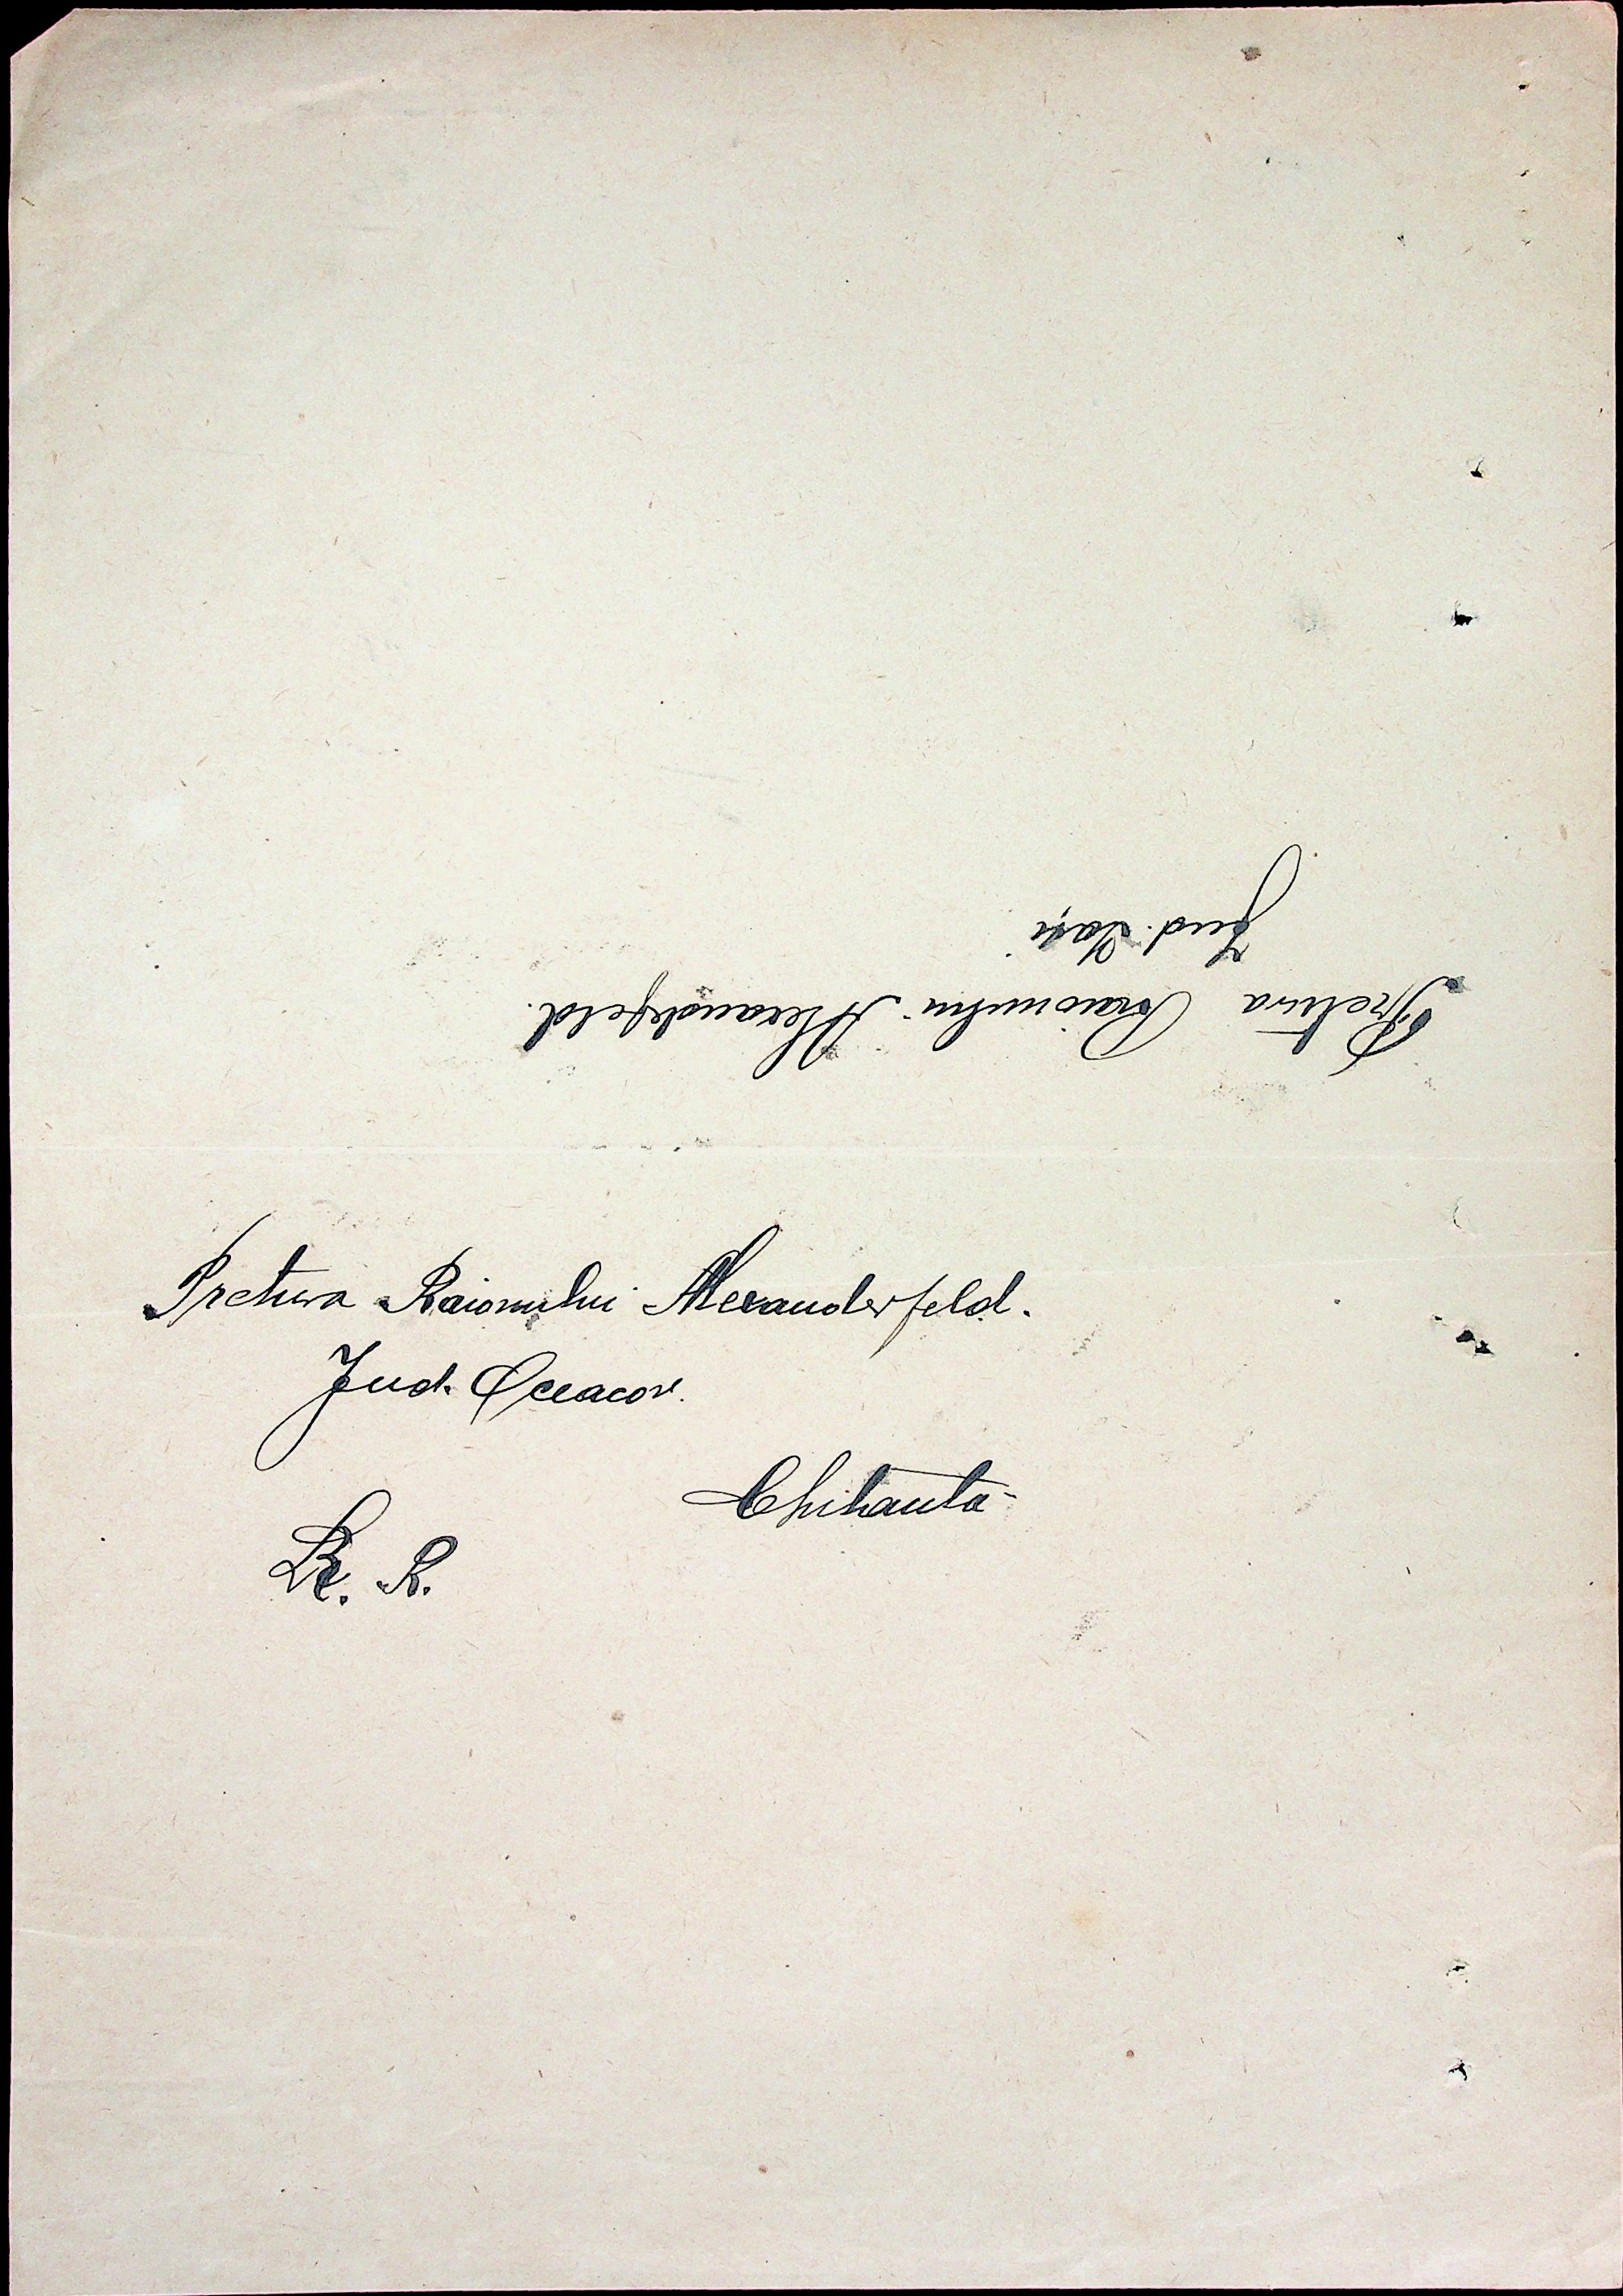 Pretura Raionului Alexandefeld.
Jud. Iași
Pretura Raionului Alexanderfeld.
Jud. Oceacov.
Chitanta
R.